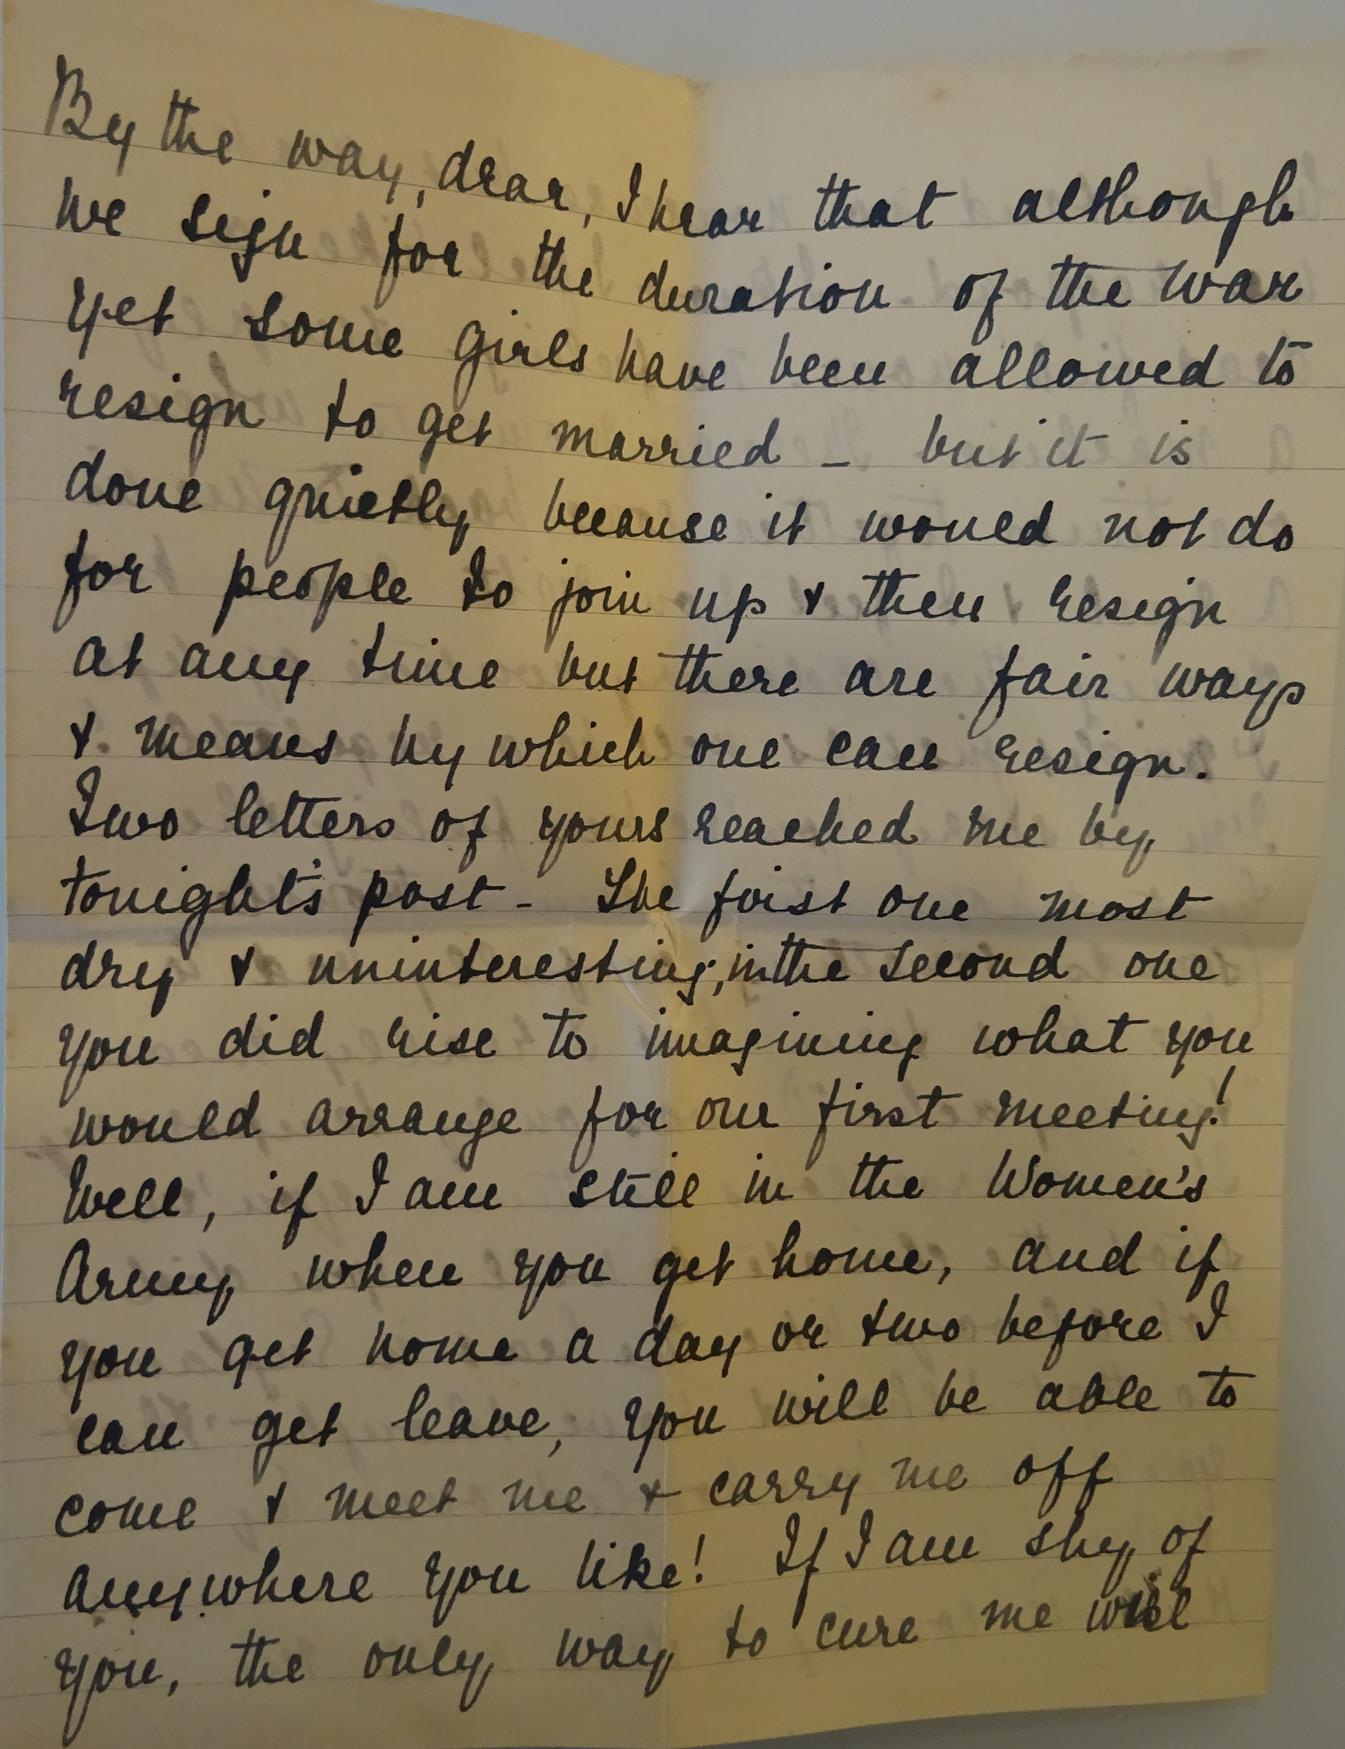 By the way, dear, I hear that although
we sign for the duration of the war
yet some girls have been allowed to
resign to get married - but it is
done quietly because it would not do
for people to join up & then resign
at any time but there are fair ways
& means by which one can resign.
Two letters of yours reached me by
tonight's post - The first one most
dry & uninteresting; in the second one
you did rise to imagining what you
would arrange for our first meeting!
Well, if I am still in the Women's
Army when you get home, and if
you get home a day or two before I
can get leave, you will be able to
come & meet me & carry me off
anywhere you like! If I am shy of
you, the only way to cure me will